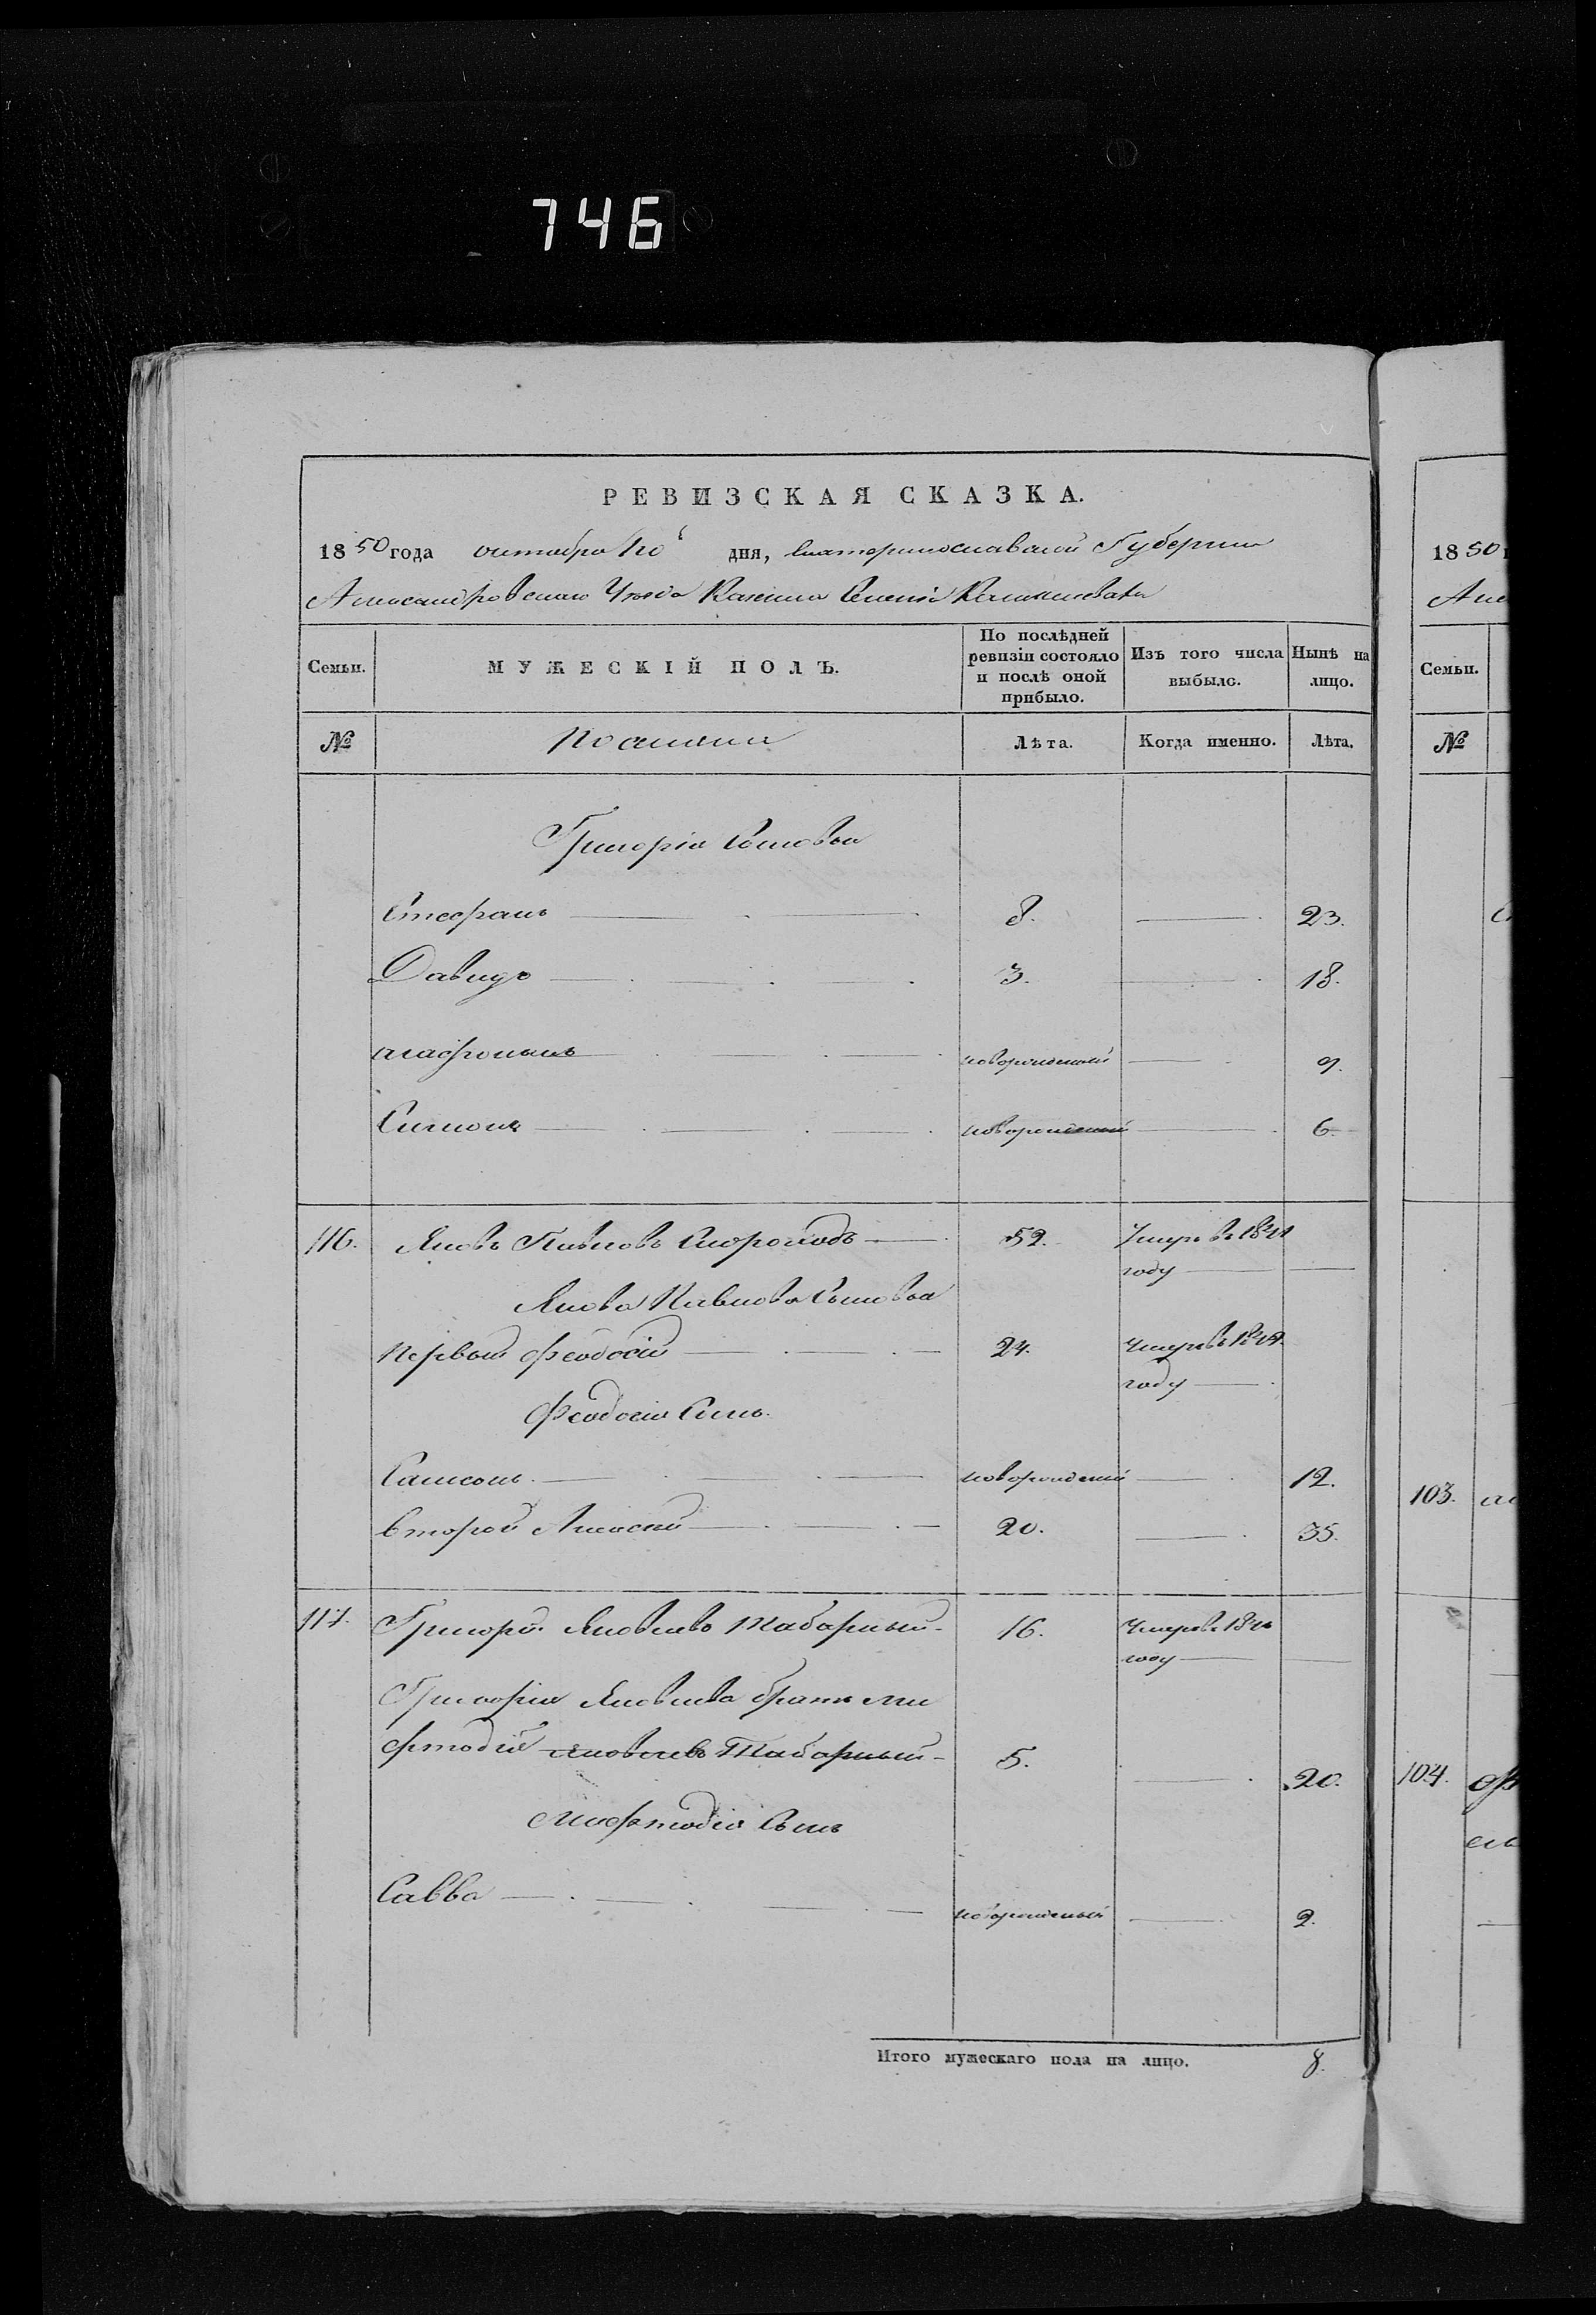 746
РЕВИЗСКАЯ СКАЗКА.
1850 года октября 10 дня, Екатеринославской Губернии
Александровскаго Уезда Казенна Селенія
Семьи. МУЖЕСКІЙ ПОЛЪ. По послѣдней ревизіи состояло и послѣ оной прибыло. Изъ того числа выбыло. Нынѣ на лицо.
№ Поселяни Лѣта. Когда именно. Лѣта.
Григорія Сыновья
Стефанъ 8. 23.
Давидъ 3. 18.
новорожденный 9.
Симонъ новорожденный 6.
116. Яковъ Павловъ Скороходъ 52. Умеръ въ
году
Якова Павлова Сыновья
Первый Феодосій 24. Умеръ въ
году
Феодосія Сынъ
Самсонъ новорожденный 12.
второй Алексѣй 20. 35.
117. Григорій Яковлевъ Таборный 16. Умеръ въ
году
Григорія Яковлева братъ Ме
фтодій Яковлевъ Таборный 5. 20.
Мефтодія Сынъ
Савва новорожденный 2.
Итого мужескаго пола на лицо. 8.
1850
Але
Семьи.
№
103.
104.